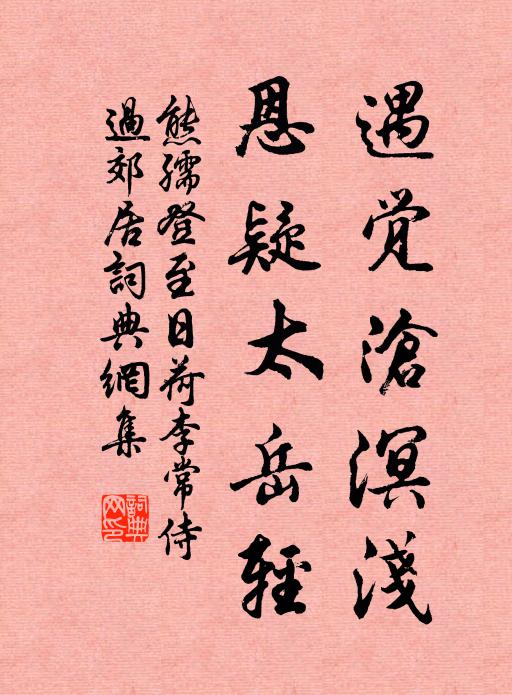 遇觉滄溟淺
恩疑太岳輕
熊孺登至日荷李常侍
過郊居詞典網集
詞典网印